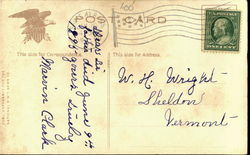 POST CARD
This side for Correspondence.
This side for Address.
Dear Si
John died June 9th
1895
yours truly
Marvin Clark
W. H. Wright
Sheldon
Vermont